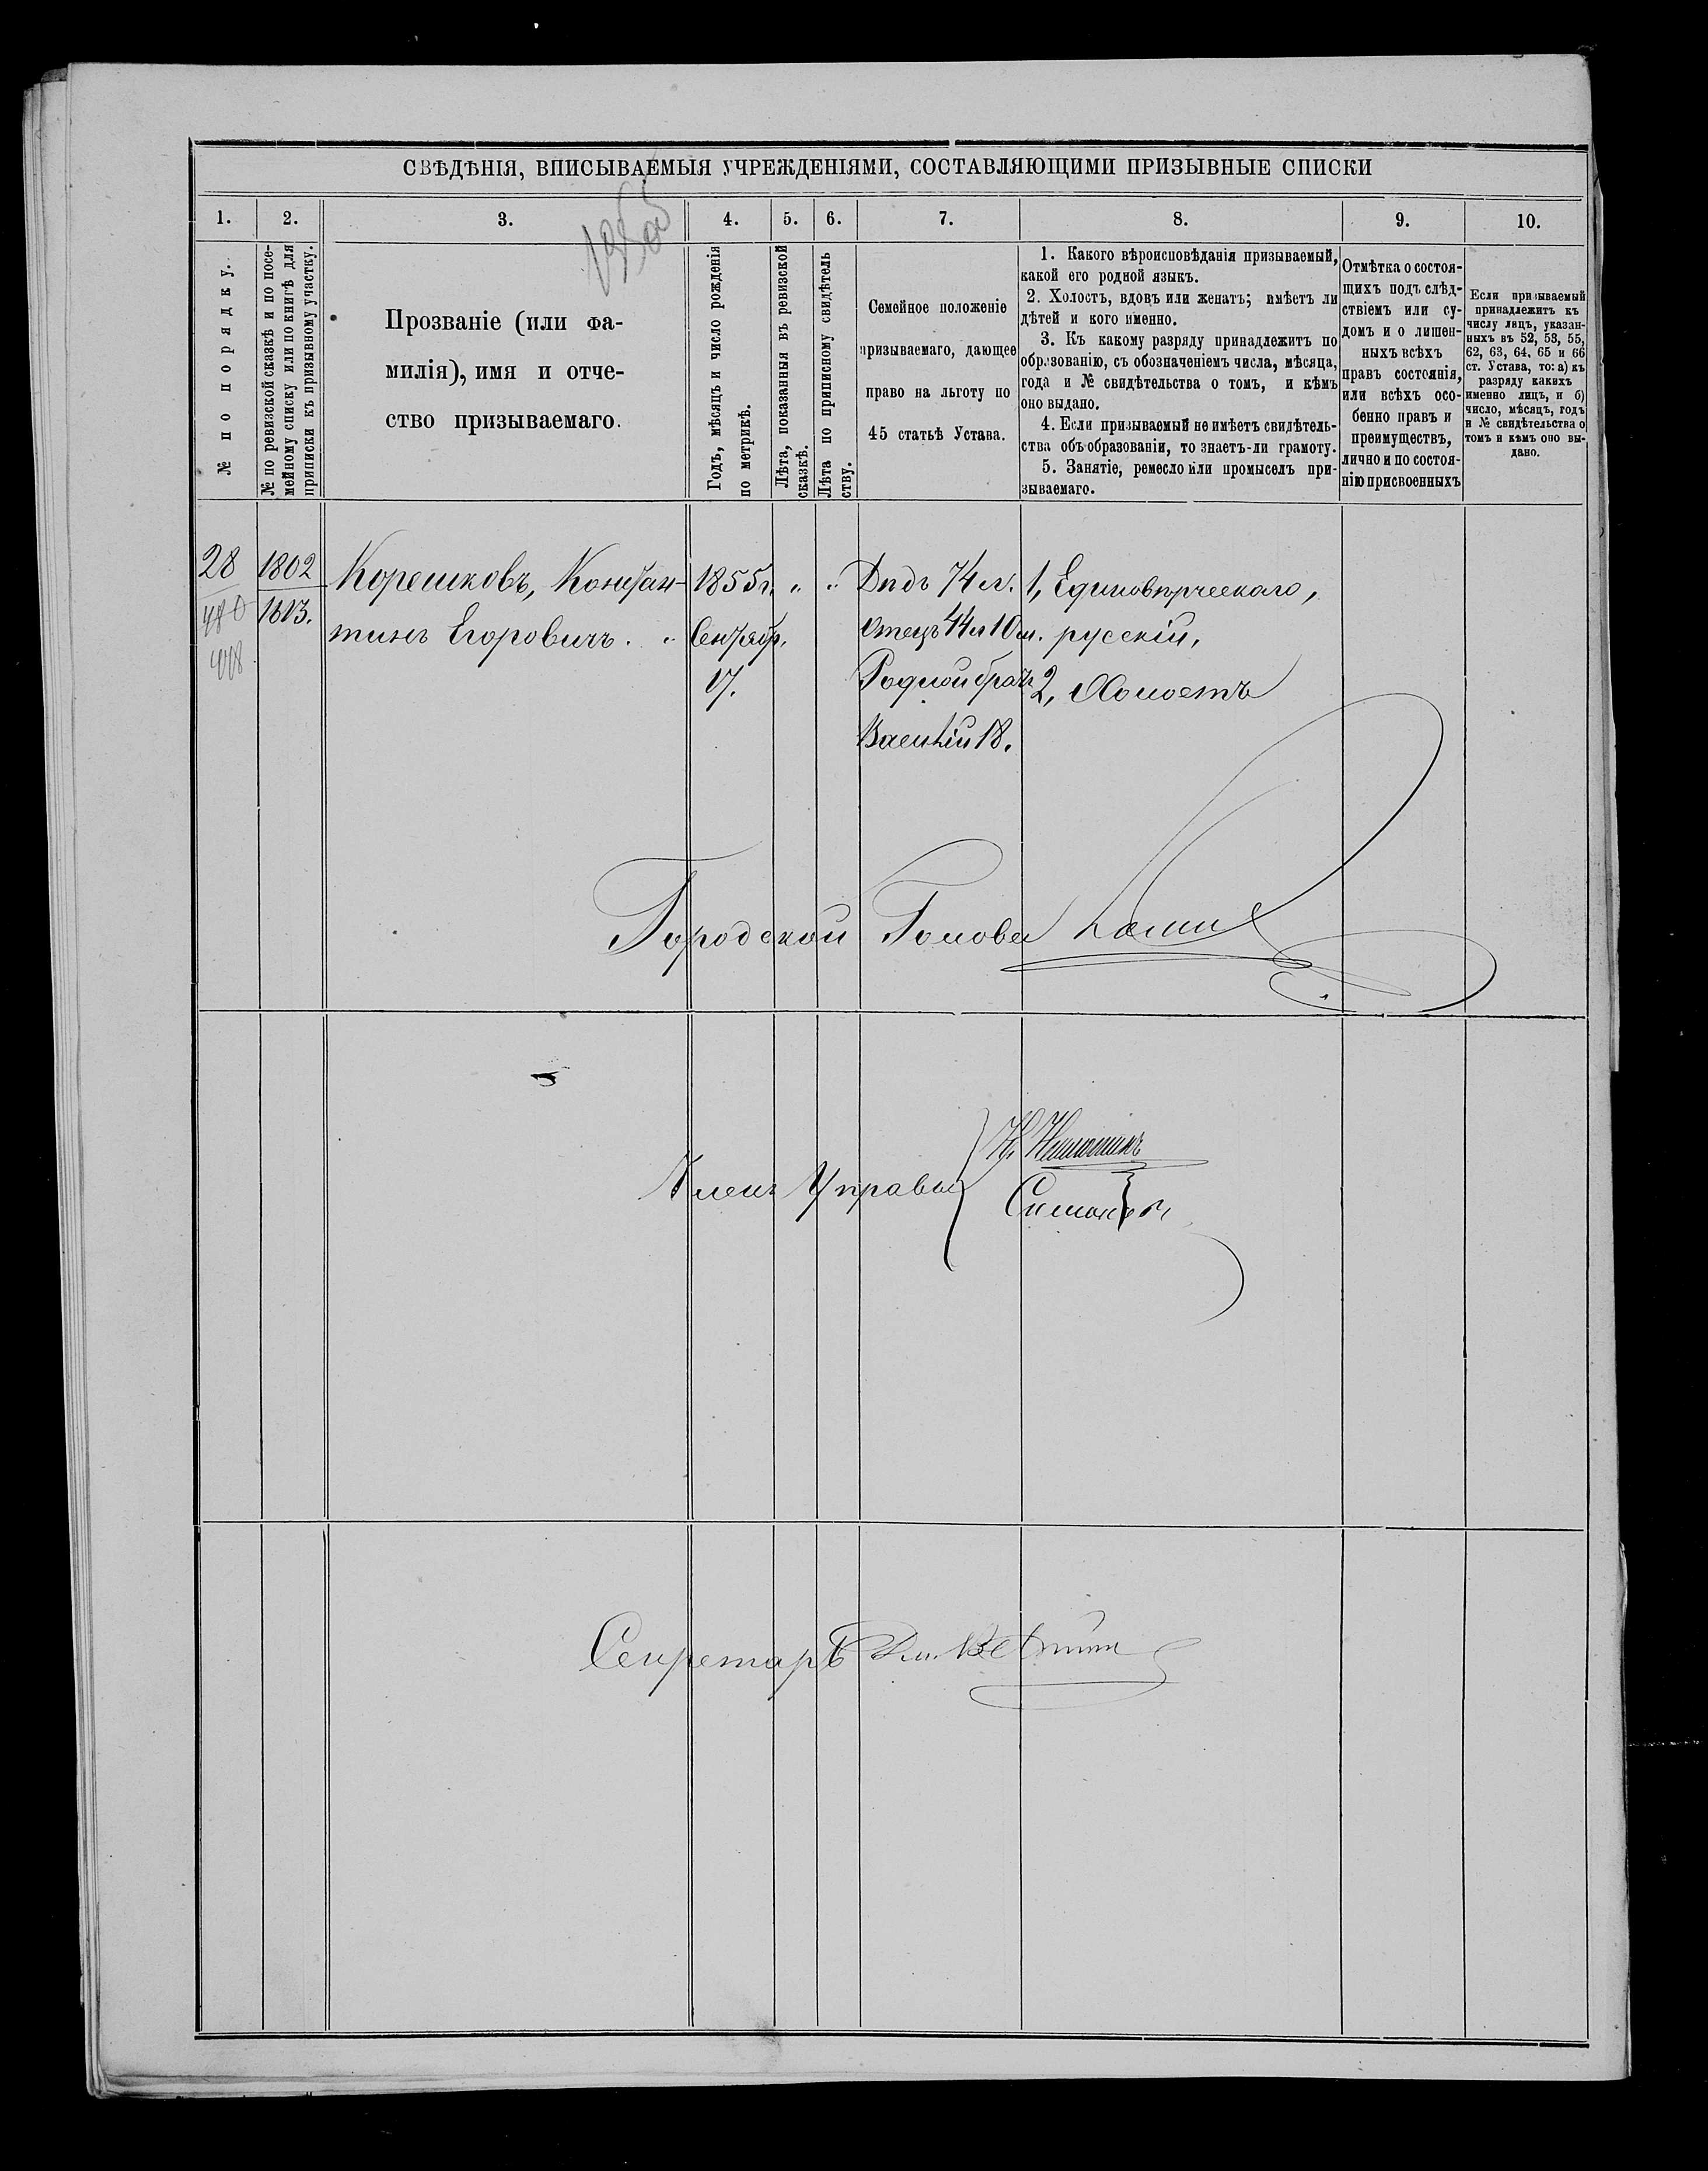 СВѢДѢНІЯ, ВПИСЫВАЕМЫЯ УЧРЕЖДЕНІЯМИ, СОСТАВЛЯЮЩИМИ ПРИЗЫВНЫЕ СПИСКИ
1.
2.
3.
4.
5.
6.
7.
8.
9.
10.
№ по порядку.
№ по ревизской сказкѣ и по посе-
мейному списку или по книгѣ для
приписки къ призывному участку.
Прозваніе (или фа-
милія), имя и отче-
ство призываемаго.
Годъ, мѣсяцъ и число рожденія
по метрикѣ.
Лѣта, показанныя въ ревизской
сказкѣ.
Лѣта по приписному свидѣтель
ству.
Семейное положеніе
призываемаго, дающее
право на льготу по
45 статьѣ Устава.
1. Какого вѣроисповѣданія призываемый,
какой его родной языкъ.
2. Холостъ, вдовъ или женатъ; имѣетъ ли
дѣтей и кого именно.
3. Къ какому разряду принадлежитъ по
образованію, съ обозначеніемъ числа, мѣсяца,
года и № свидѣтельства о томъ, и кѣмъ
оно выдано.
4. Если призываемый не имѣетъ свидѣтель-
ства объ образованіи, то знаетъ-ли грамоту.
5. Занятіе, ремесло или промыселъ при-
зываемаго.
Отмѣтка о состоя-
щихъ подъ слѣд-
ствіемъ или су-
домъ и о лишен-
ныхъ всѣхъ
правъ состоянія,
или всѣхъ осо-
бенно правъ и
преимуществъ,
лично и по состоя-
нію присвоенныхъ
Если призываемый
принадлежитъ къ
числу лицъ, указан-
ныхъ въ 52, 53, 55,
62, 63, 64, 65 и 66
ст. Устава, то: а) къ
разряду какихъ
именно лицъ, и б)
число, мѣсяцъ, годъ
и № свидѣтельства о
томъ и кѣмъ оно вы-
дано.
28
1802
1613.
Корешковъ, Констан-
тинъ Егоровичъ.
1855 г.
Сентябр.
17.
„
„
Дѣдъ 74 л.
Отецъ 44 л 10 м.
Родной братъ
Василій 18.
1, Единовѣрческаго,
русскій,
2, Холостъ
Городской Голова
Членъ Управы
Симоновъ
Секретарь